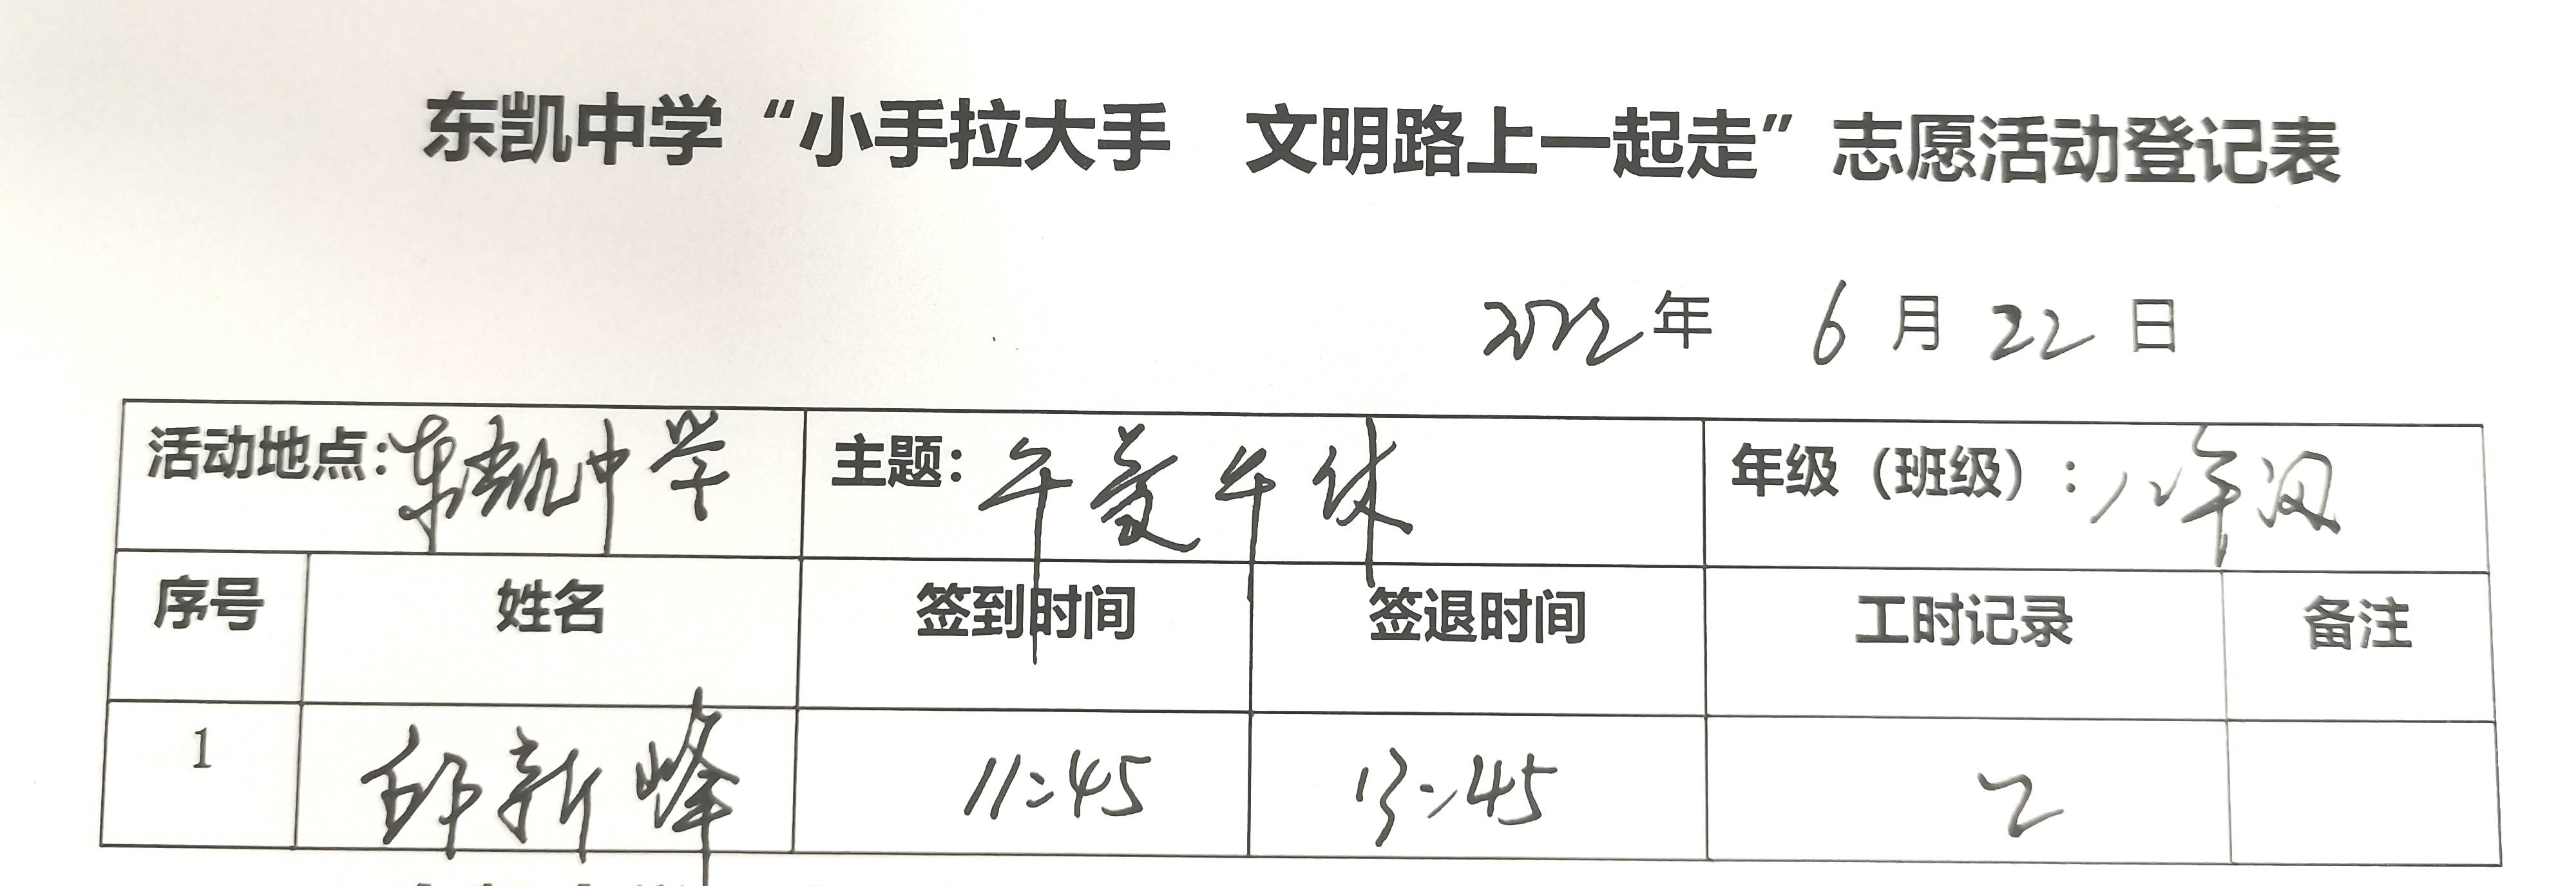 东凯中学“小手拉大手 文明路上一起走”志愿活动登记表
2022年 6月22日
活动地点:东凯中学 主题:午餐午休 年级(班级):八年级
序号 姓名 签到时间 签退时间 工时记录 备注
1 邱新峰 11:45 13:45 2